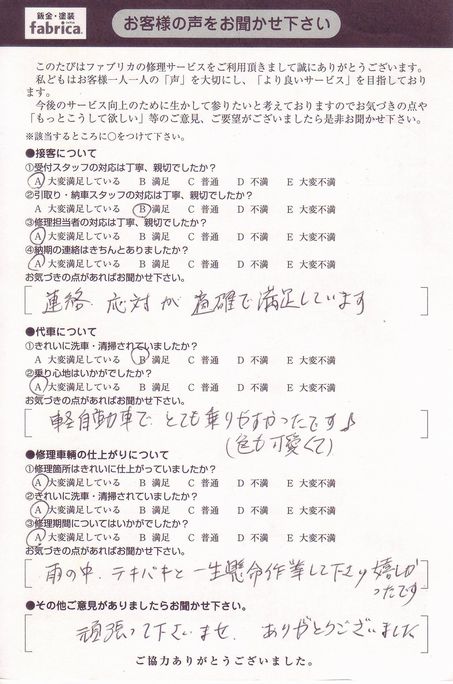 鈑金・塗装
fabrica.
お客様の声をお聞かせ下さい
このたびはファブリカの修理サービスをご利用頂きまして誠にありがとうございます。
私どもはお客様一人一人の「声」を大切にし、「より良いサービス」を目指しており
ます。
今後のサービス向上のために生かして参りたいと考えておりますのでお気づきの点や
「もっとこうして欲しい」等のご意見、ご要望がございましたら是非お聞かせ下さい。
※該当するところに○をつけて下さい。
●接客について
①受付スタッフの対応は丁寧、親切でしたか？
A 大変満足している B 満足 C 普通 D 不満 E 大変不満
②引取り・納車スタッフの対応は丁寧、親切でしたか？
A 大変満足している B 満足 C 普通 D 不満 E 大変不満
③修理担当者の対応は丁寧、親切でしたか？
A 大変満足している B 満足 C 普通 D 不満 E 大変不満
④納期の連絡はきちんとありましたか？
A 大変満足している B 満足 C 普通 D 不満 E 大変不満
お気づきの点があればお聞かせ下さい。
連絡、応対が適確で満足しています
●代車について
①きれいに洗車・清掃されていましたか？
A 大変満足している B 満足 C 普通 D 不満 E 大変不満
②乗り心地はいかがでしたか？
A 大変満足している B 満足 C 普通 D 不満 E 大変不満
お気づきの点があればお聞かせ下さい。
軽自動車で とても乗りやすかったです♪
(色も可愛くて)
●修理車輛の仕上がりについて
①修理箇所はきれいに仕上がっていましたか？
A 大変満足している B 満足 C 普通 D 不満 E 大変不満
②きれいに洗車・清掃されていましたか？
A 大変満足している B 満足 C 普通 D 不満 E 大変不満
③修理期間についてはいかがでしたか？
A 大変満足している B 満足 C 普通 D 不満 E 大変不満
お気づきの点があればお聞かせ下さい。
雨の中、テキパキと一生懸命作業して下さり嬉しか
ったです
●その他ご意見がありましたらお聞かせ下さい。
頑張って下さいませ、ありがとうございました
ご協力ありがとうございました。